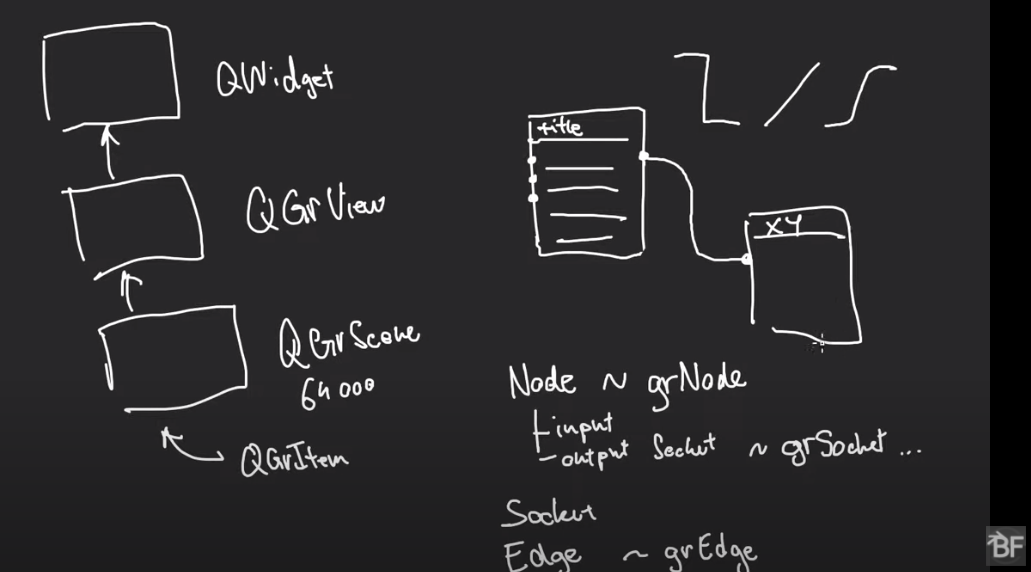 QWidget
QGrView
QGrScene
64000
QGrItem
title
XY
Node ~ grNode
input
output Socket ~ grSocket ...
Socket
Edge ~ grEdge
BF